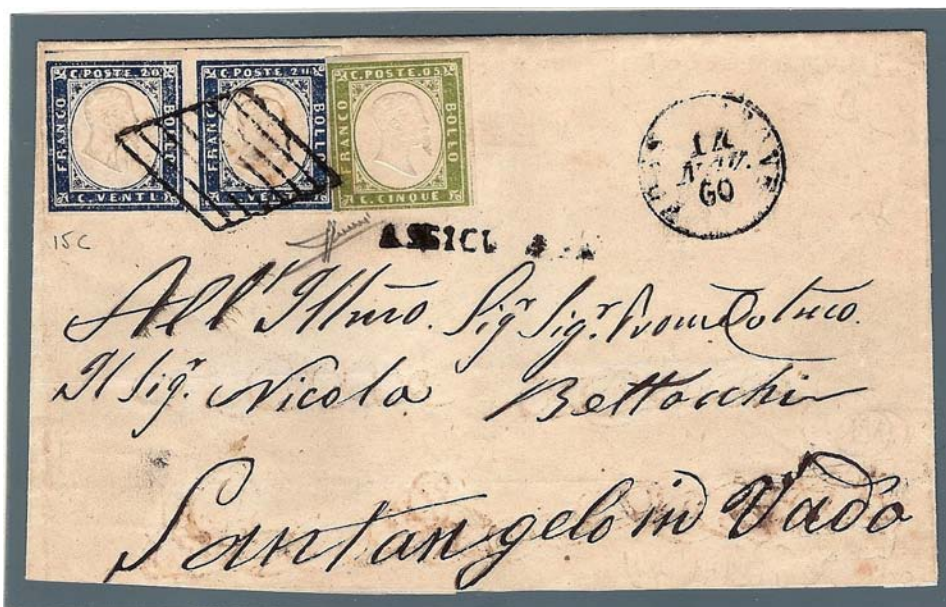 C. POSTE. 20
FRANCO
BOLLO
C. VENTI
C. POSTE. 20
FRANCO
BOLLO
C. VENTI
C. POSTE. 05
FRANCO
BOLLO
C. CINQUE
NOV.
60
15 C
ASSICU
All' Illmo. Sigr Sigr.
Il Sigr. Nicola Bettocchi
Santangelo in Vado